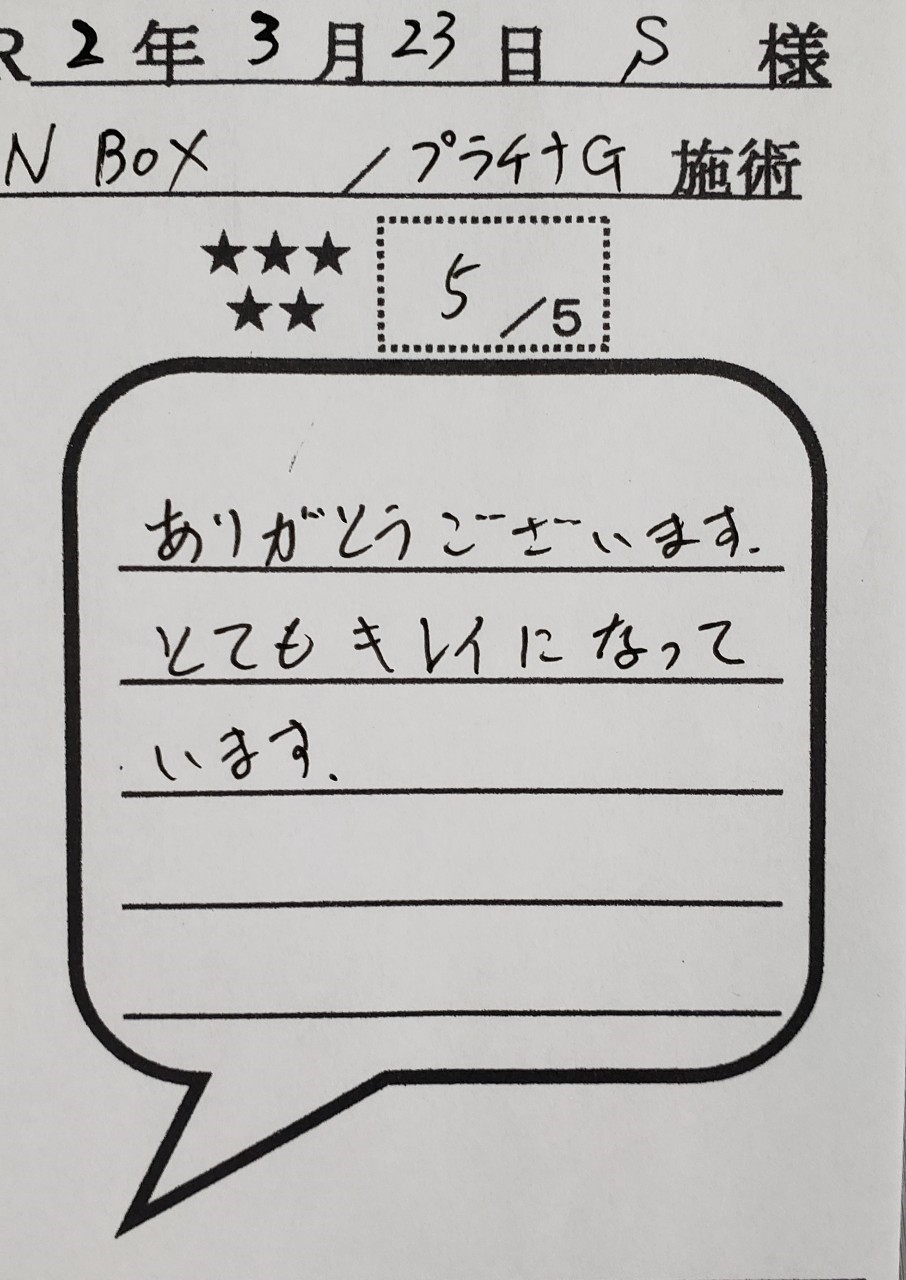 R 2 年 3 月 23 日 S 様
N BOX / プラチナG 施術
★★★
★★
5 / 5
ありがとうございます.
とてもキレイになって
います.